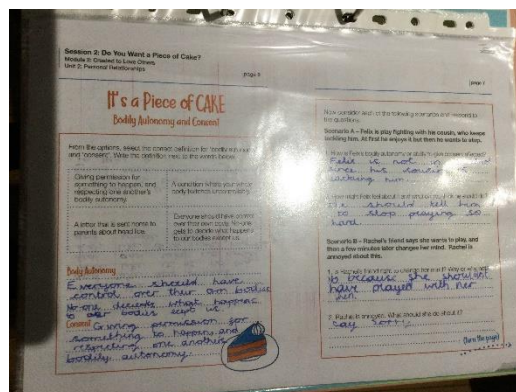 Session 2: Do You Want a Piece of Cake?
Module 2: Created to Love Others
Unit 2: Personal Relationships
page 6
page 7
It's a Piece of CAKE
Bodily Autonomy and Consent
From the options, select the correct definition for 'bodily autonomy'
and 'consent'. Write the definition next to the words below.
Giving permission for
something to happen, and
respecting one another's
bodily autonomy.
A condition where your
body
A letter that is sent home to
parents about head lice.
Everyone should have control
over their own body. No-one
gets to decide what happens
to our bodies except us.
Body Autonomy
Everyone should have
control over their own bodies
No-one decides what happens
to our bodies
Consent Giving permission for
something to happen, and
respecting one another
bodily autonomy.
Now consider each of the following scenarios and respond to
the questions.
Scenario A - Felix is play fighting with his cousin, who keeps
tickling him. At first he enjoys it but then he wants to stop.
Felix is not in
since his cousin is
tickling him
should tell him
to stop playing so
hard.
Scenario B - Rachel's friend says she wants to play, and
then a few minutes later changes her mind. Rachel is
annoyed about this.
because she shouldnt
have played with her
then.
2. Rachel is annoyed. What should she do about it?
say sorry.
(turn the page)